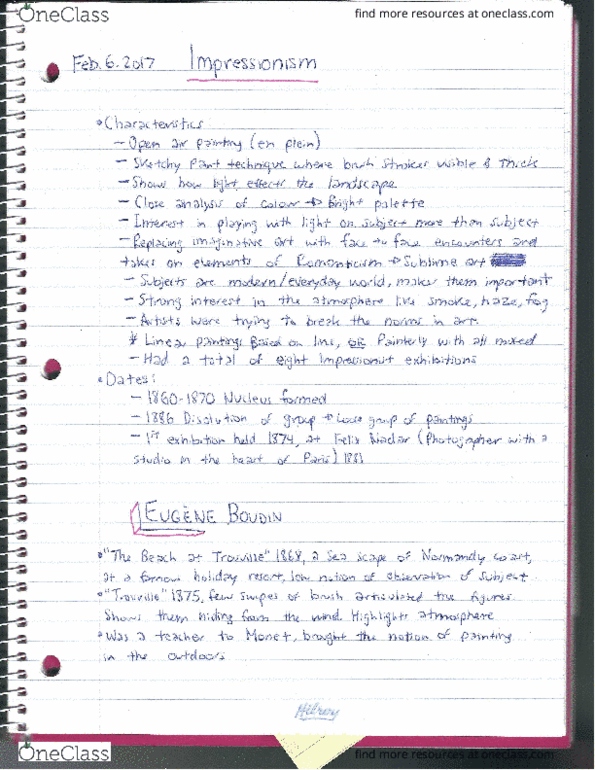 OneClass
find more resources at oneclass.com
Feb. 6. 2017 Impressionism
• Characteristics:
- Open air painting (en plein)
- Sketchy Paint technique where brush strokes visible & thick
- Shows how light effects the landscape
- Close analysis of colour → Bright palette
- Interest in playing with light on subject more than subject
- Replacing imaginative art with face to face encounters and
takes on elements of Romanticism → Sublime art
- Subjects are modern/everyday world, makes them important
- Strong interest in the atmosphere like smoke, haze, fog
- Artists were trying to break the norms in art.
* Linear paintings Based on line, OR Painterly with all mixed
- Had a total of eight Impressionist exhibitions
• Dates:
- 1860-1870 Nucleus formed
- 1886 Disolution of group → Loose group of paintings
- 1st exhibition held 1874, at Felix Nadar (Photographer with a
studio in the heart of Paris) 1881
EUGÈNE BOUDIN
• "The Beach at Trouville" 1868, a sea scape of Normandy coast,
at a famous holiday resort, low notion of observation of subject
• "Trouville" 1875, few swipes of brush articulated the figures.
Shows them hiding from the wind. Highlights atmosphere
• Was a teacher to Monet, brought the notion of painting
in the outdoors
Hilroy
OneClass
find more resources at oneclass.com